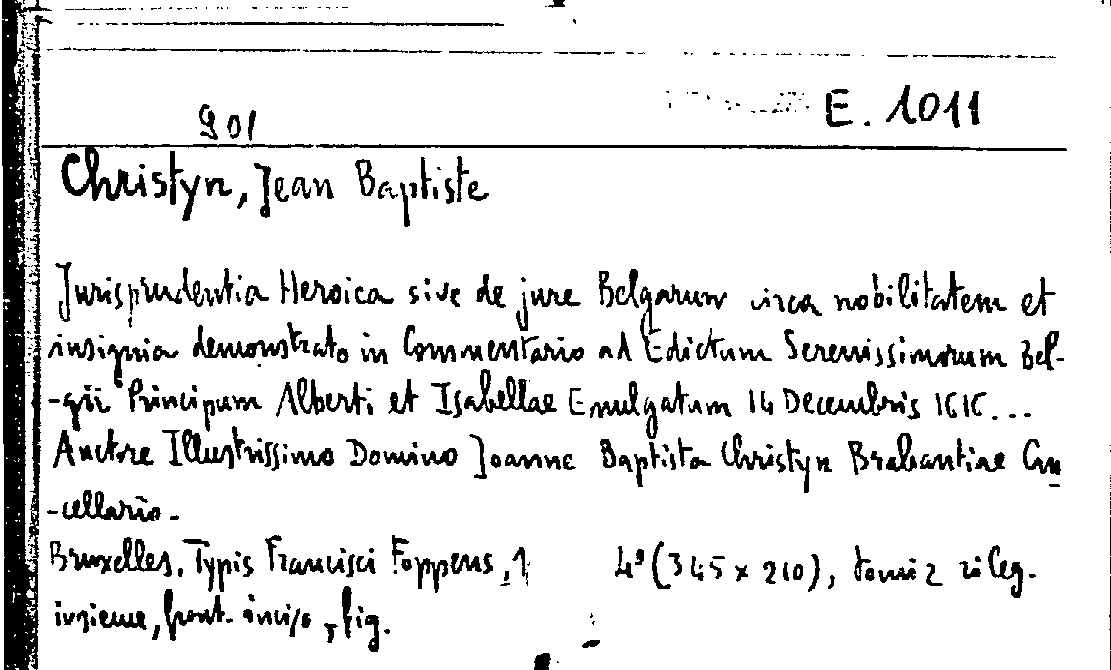 901
E. 1011
Christyn, Jean Baptiste
Jurisprudentia Heroica sive de jure Belgarum circa nobilitatem et
insignia demonstrato in Commentario ad Edictum Serenissimorum Bel-
-gii Principum Alberti et Isabellae Emulgatum 14 Decembris 1616...
Auctore Illustrissimo Domino Joanne Baptista Christyn Brabantiae Can
-cellario.
Bruxelles, Typis Francisci Foppens, 1 4° (345 x 210), tomi 2 rileg.
insieme, front. inciso, fig.